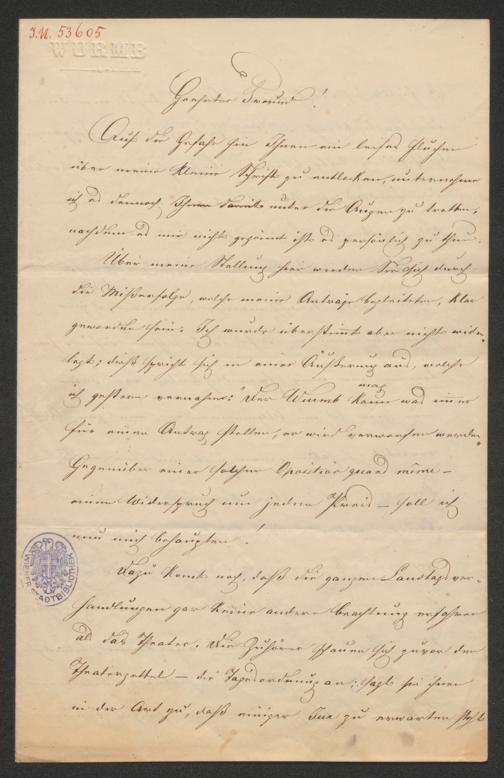 J.N. 53605
WURMB
Geehrter Freund!
Auf die Gefahr hin Ihnen ein leises Fluchen
über meine kleine Schrift zu entlocken, unternehme
ich es dennoch, Ihnen damit unter die Augen zu tretten,
nachdem es mir nicht gegönnt ist es persönlich zu thun.
Über meine Stellung hier werden Sie sich durch
die Mißerfolge, welche meine Anträge begleiteten, klar
geworden sein. Ich wurde überstimmt aber nicht wider-
legt; dieß spricht sich in einer Äußerung aus, welche
ich gestern vernahm: "Der Wurmb mag was immer
für einen Antrag stellen, er wird verworfen werden."
Gegenüber einer solchen Oposition quand même –
einem Widerspruch um jeden Preis – soll ich
nun mich behaupten!
Dazu kömt noch, daß die ganzen Landtagsver-
handlungen gar keine andere Beachtung erfahren
als das Theater. Die Zuhörer schauen sich zuvor den
Theaterzettel – die Tagesordnung an; sagt sie ihnen
in der Art zu, daß einiger Jux zu erwarten steht
WIENER STADTBIBLIOTHEK